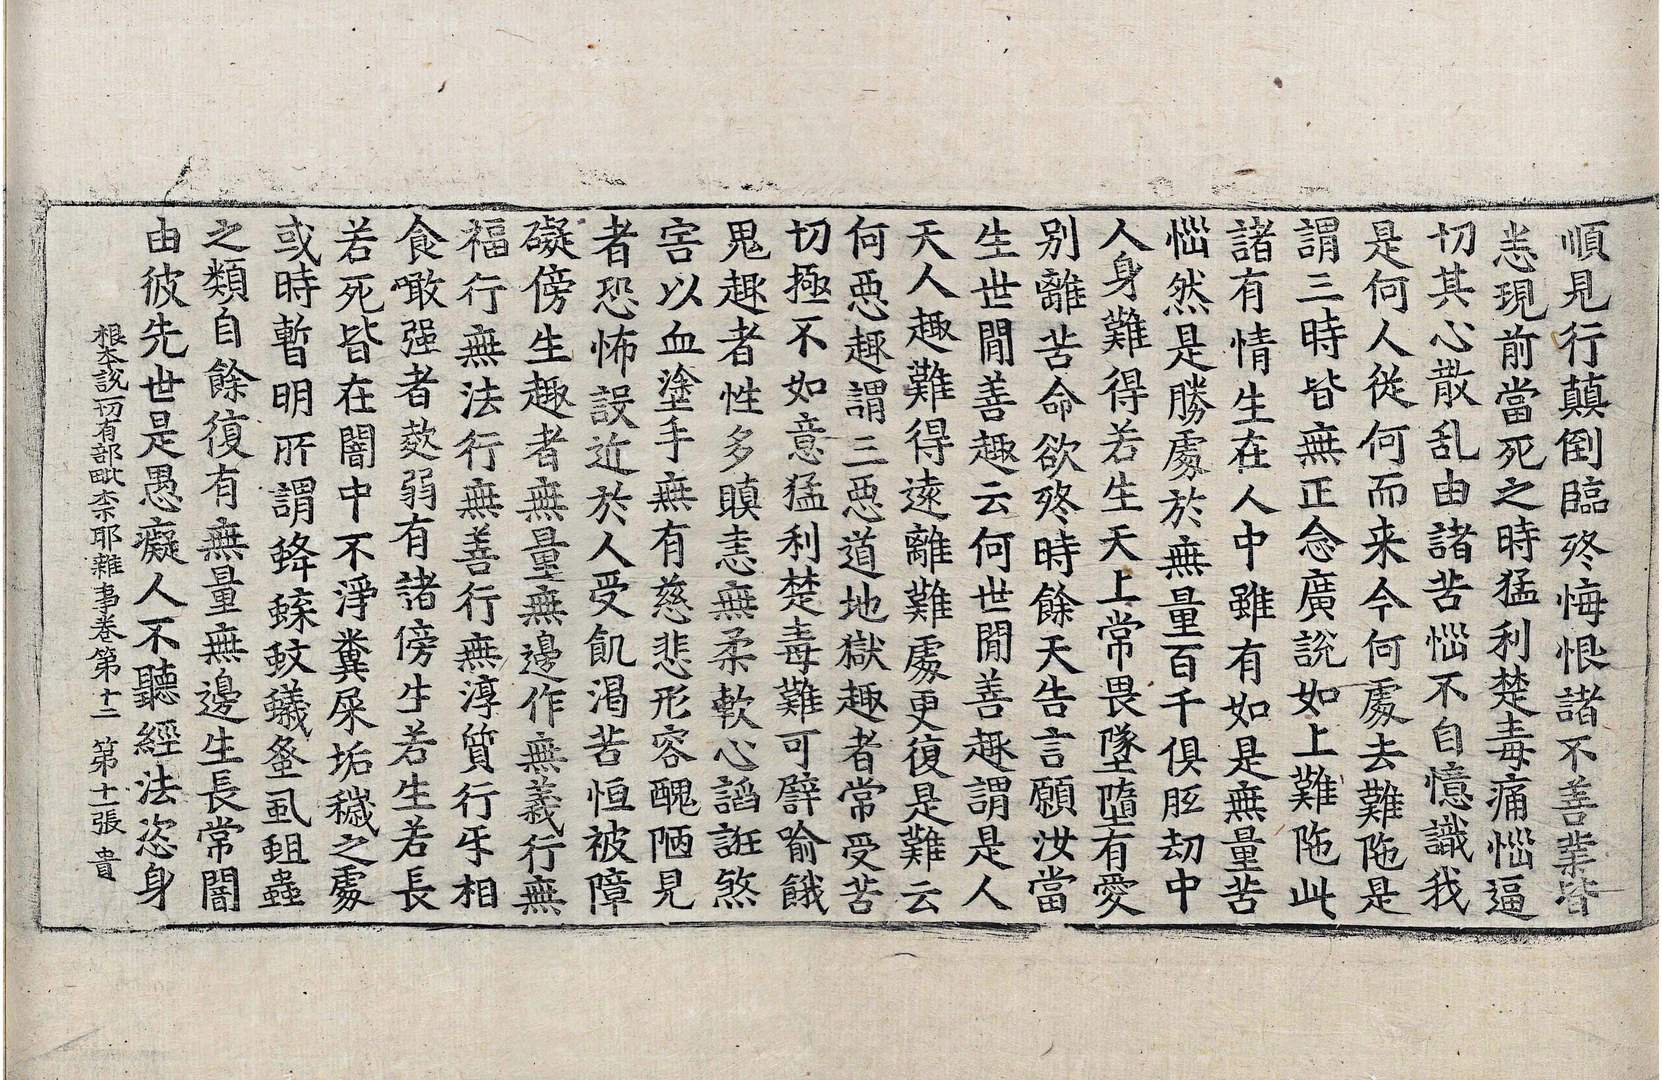 順見行顛倒臨終悔恨諸不善業皆
悉現前當死之時猛利楚毒痛惱逼
切其心散乱由諸苦惱不自憶識我
是何人從何而来今何處去難陁是
謂三時皆無正念廣說如上難陁此
諸有情生在人中雖有如是無量苦
惱然是勝處於無量百千俱胝劫中
人身難得若生天上常畏墜墮有愛
别離苦命欲終時餘天告言願汝當
生世間善趣云何世間善趣謂是人
天人趣難得遠離難處更復是難云
何惡趣謂三惡道地獄趣者常受苦
切極不如意猛利楚毒難可譬喻餓
鬼趣者性多瞋恚無柔軟心諂誑煞
害以血塗手無有慈悲形容醜陋見
者恐怖設近於人受飢渴苦恒被障
礙傍生趣者無量無邊作無義行無
福行無法行無善行無淳質行互相
食噉强者欺弱有諸傍生若生若長
若死皆在闇中不淨糞屎垢穢之處
或時暫明所謂蜂䗍蚊蟻蚤虱蛆蟲
之類自餘復有無量無邊生長常闇
由彼先世是愚癡人不聽經法恣身
根本說一切有部毗奈耶雜事卷第十二 第十一張 貴